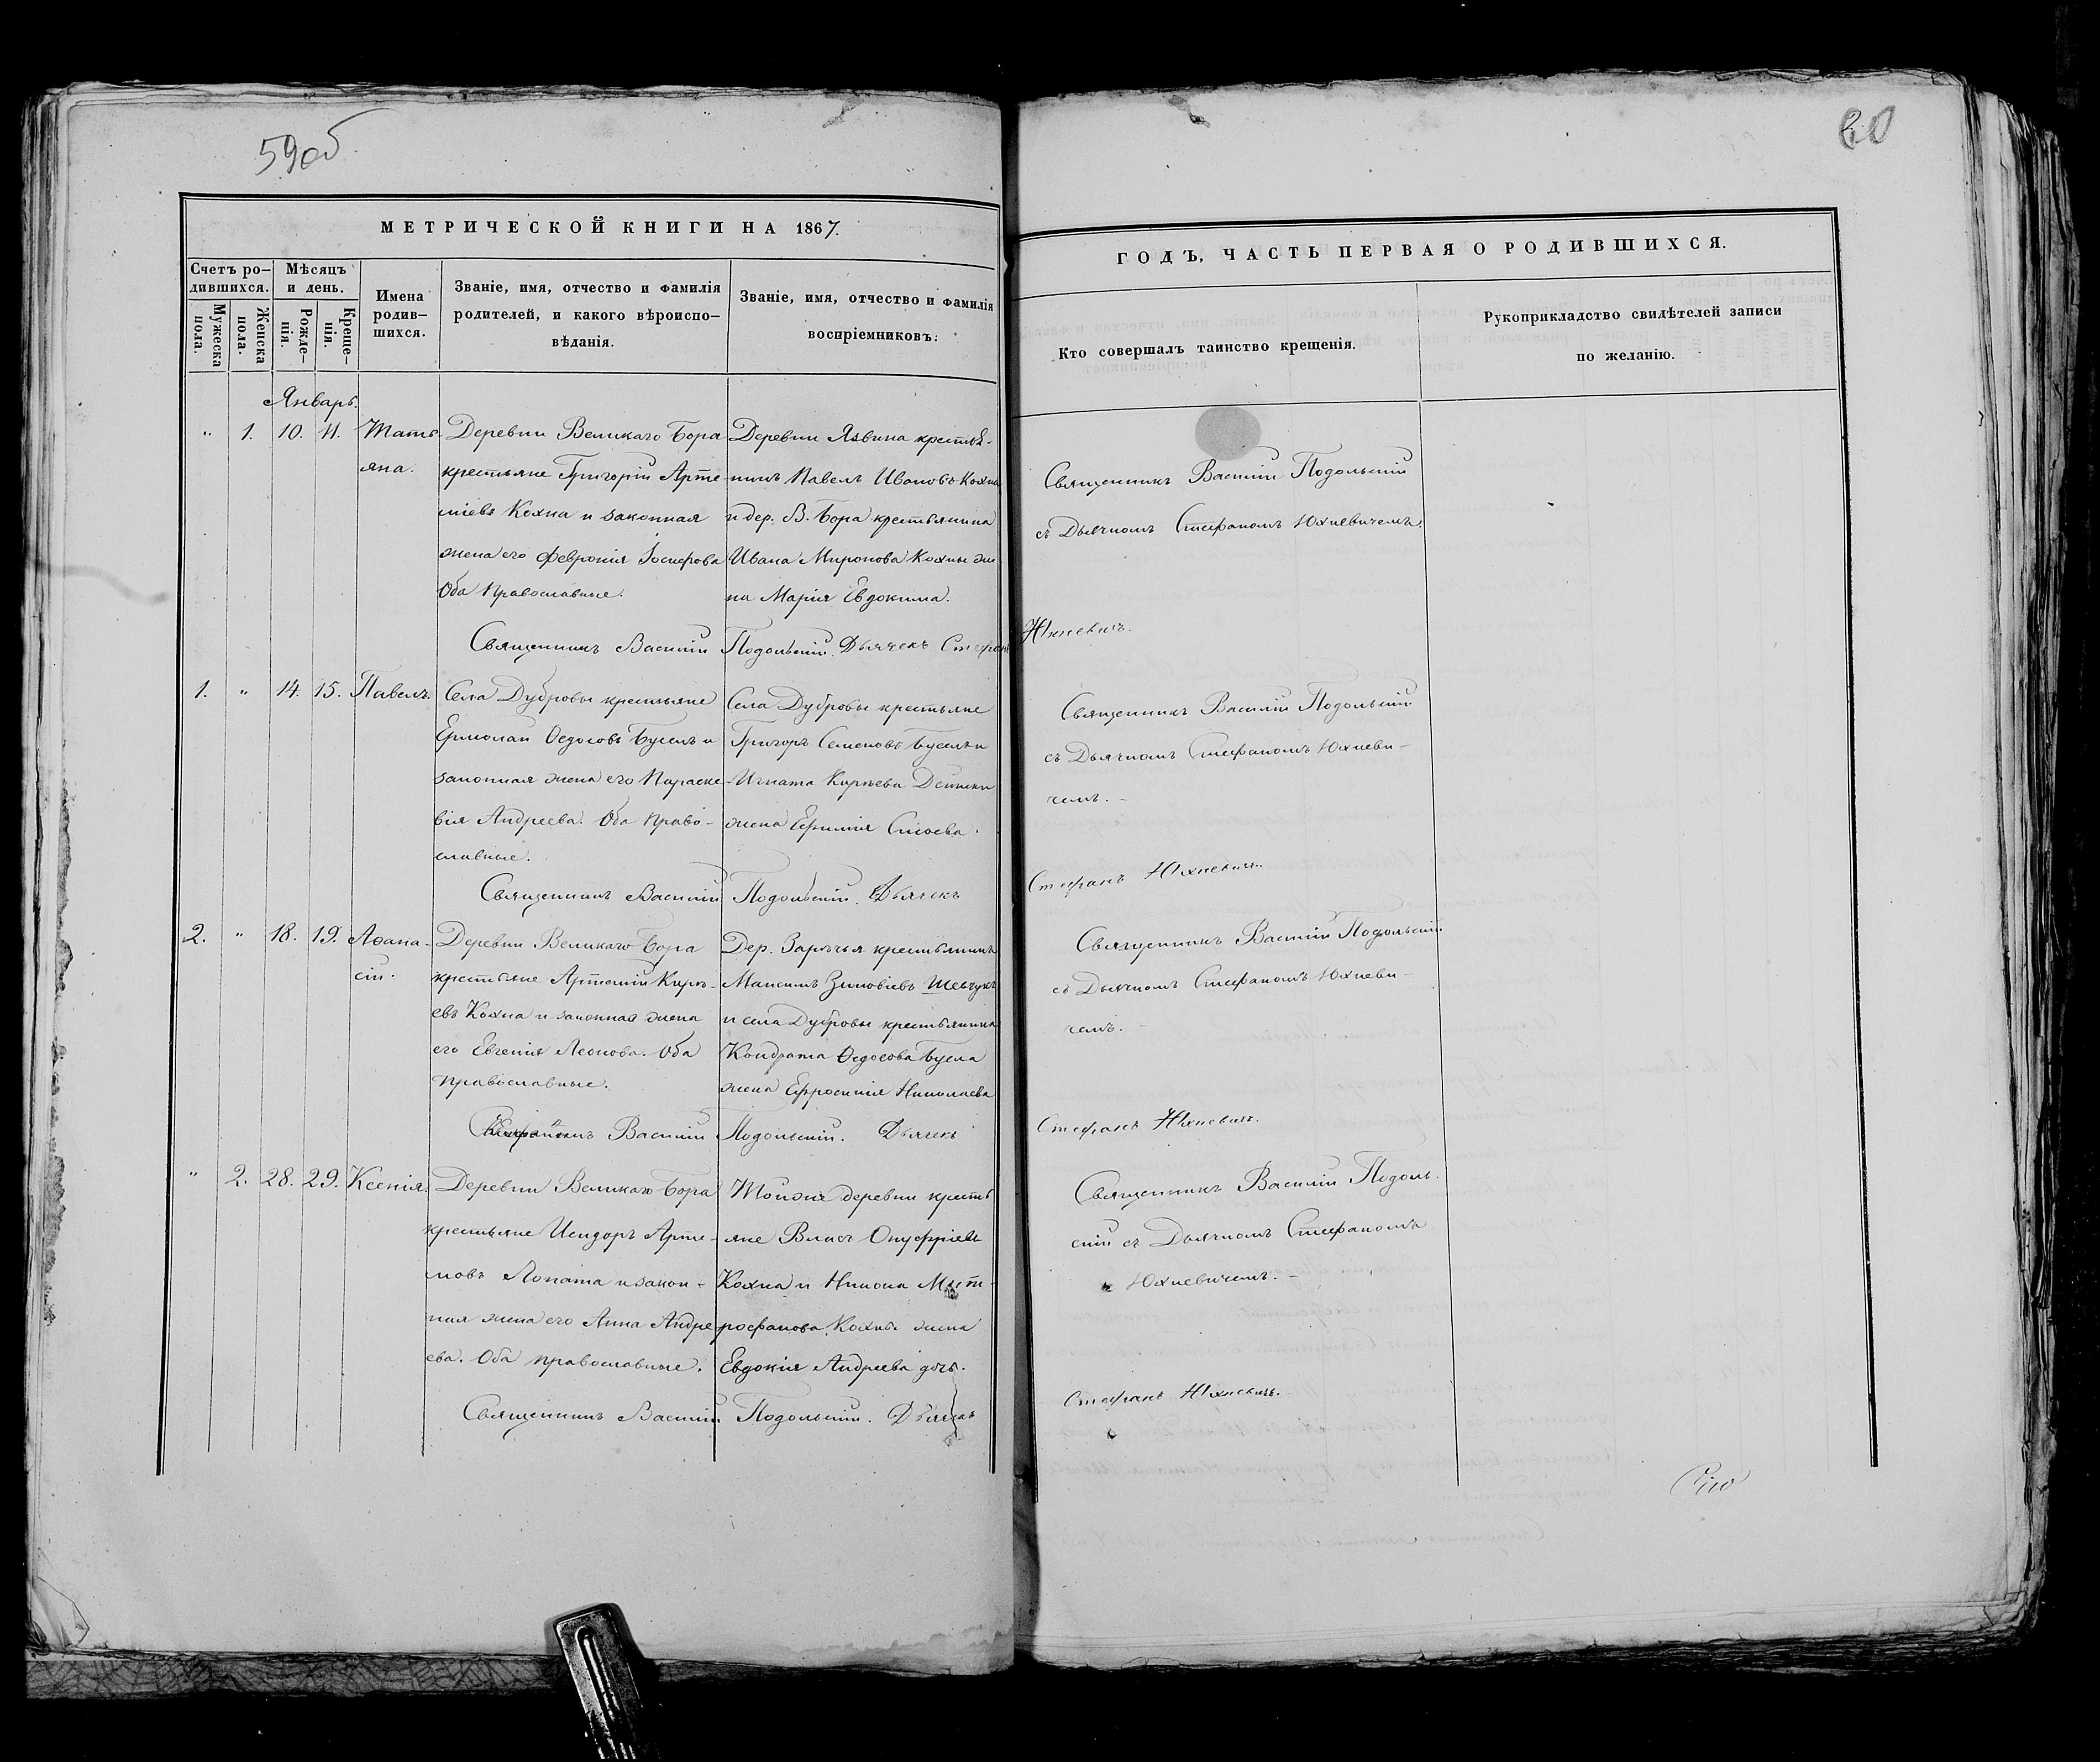 59об
60
МЕТРИЧЕСКОЙ КНИГИ НА 1867.
ГОДЪ, ЧАСТЬ ПЕРВАЯ О РОДИВШИХСЯ.
Счетъ ро-
дившихся.
Мужеска
пола.
Женска
пола.
Мѣсяцъ
и день.
Рожде-
нія.
Креще-
нія.
Имена
родив-
шихся.
Званіе, имя, отчество и фамилія
родителей, и какого вѣроиспо-
вѣданія.
Званіе, имя, отчество и фамилія
воспріемниковъ:
Кто совершалъ таинство крещенія.
Рукоприкладство свидѣтелей записи
по желанію.
Январь.
" 1. 10. 11.
Татья-
яна.
Деревни Великаго Бора
крестьяне Григорій Арте-
міевъ Кохна и законная
жена его Февронія Іосифова
Оба Православные.
Деревни Язвина крестья-
нинъ Павелъ Ивановъ Кохна
и дер. В. Бора крестьянина
Ивана Миронова Кохны же-
на Марія Евдокима.
Священникъ Василій Подольскій
съ Дьячкомъ Стефаномъ Юхневичемъ.
Священникъ Василій Подольскій. Дьячекъ Стефанъ Юхневичъ.
1. " 14. 15.
Павелъ.
Села Дубровы крестьяне
Ермолай Ѳедосовъ Буселъ и
законная жена его Параске-
вія Андреева. Оба право-
славные.
Села Дубровы крестьяне
Григоръ Семеновъ Буселъ и
Игната Кирѣева
жена Ефимія
Священникъ Василій Подольскій
съ Дьячкомъ Стефаномъ Юхневи-
чемъ.
Священникъ Василій Подольскій. Дьячекъ Стефанъ Юхневичъ.
2. " 18. 19.
Аѳана-
сій.
Деревни Великаго Бора
крестьяне Артемій Кирѣ-
евъ Кохна и законная жена
его Евгенія Леонова. Оба
православные.
Дер. Зарѣчья крестьянинъ
Максимъ Зиновіевъ Шевчукъ
и села Дубровы крестьянина
Кондрата Ѳедосова Бусла
жена Ефросинія Николаева
Священникъ Василій Подольскій
съ Дьячкомъ Стефаномъ Юхневи-
чемъ.
Василій Подольскій. Дьячекъ Стефанъ Юхневичъ.
" 2. 28. 29.
Ксенія.
Деревни Великаго Бора
крестьяне Исидоръ Арте-
мовъ Лопата и закон-
ная жена его Анна Андре
ева. Оба православные.
Тойже деревни кресть
яне Власъ Онуфріевъ
Кохна и Никона Мит-
рофанова Кохны жена
Евдокія Андреева дочь.
Священникъ Василій Подоль-
скій съ Дьячкомъ Стефаномъ
Юхневичемъ.
Священникъ Василій Подольскій. Дьячекъ Стефанъ Юхневичъ.